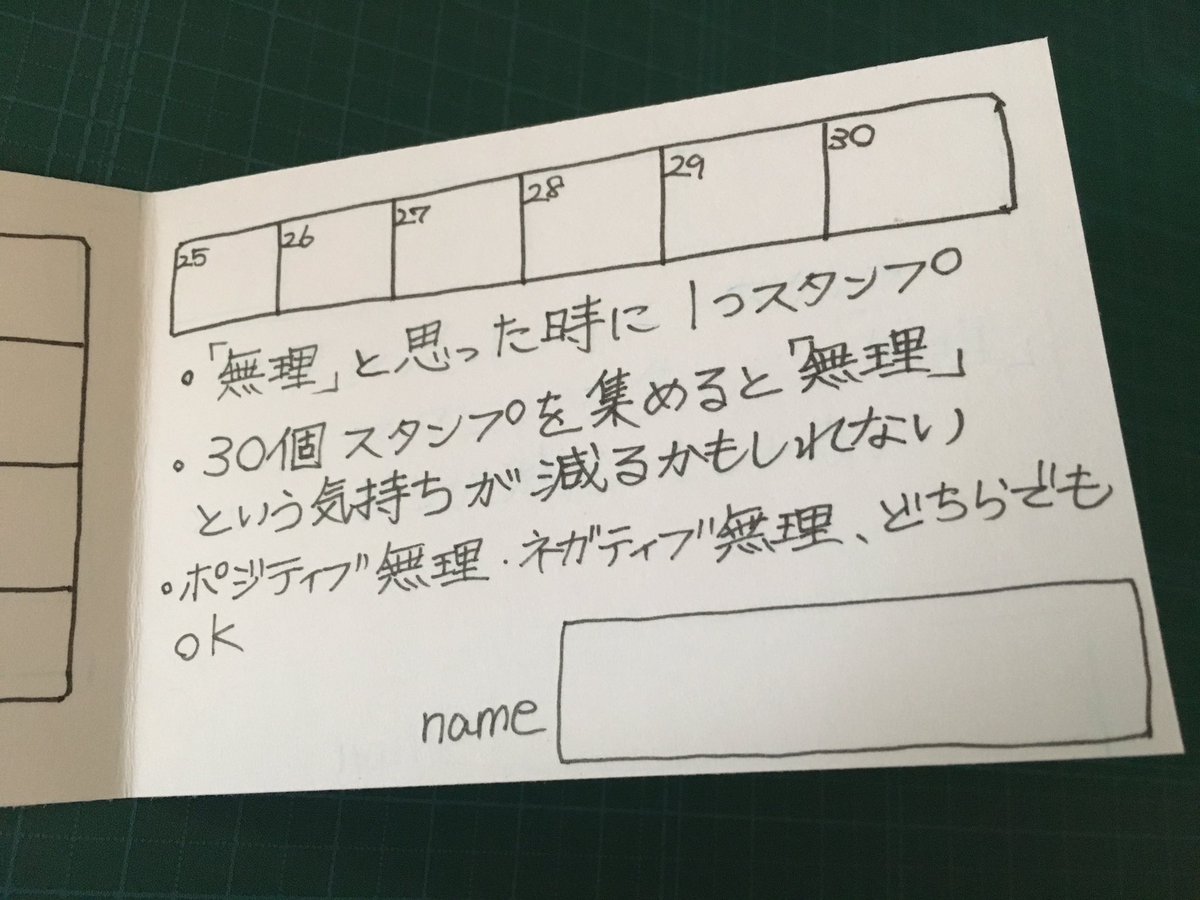 25 26 27 28 29 30
・「無理」と思った時に1つスタンプ
・30個スタンプを集めると「無理」
という気持ちが減るかもしれない
・ポジティブ無理・ネガティブ無理、どちらでも
ok
name